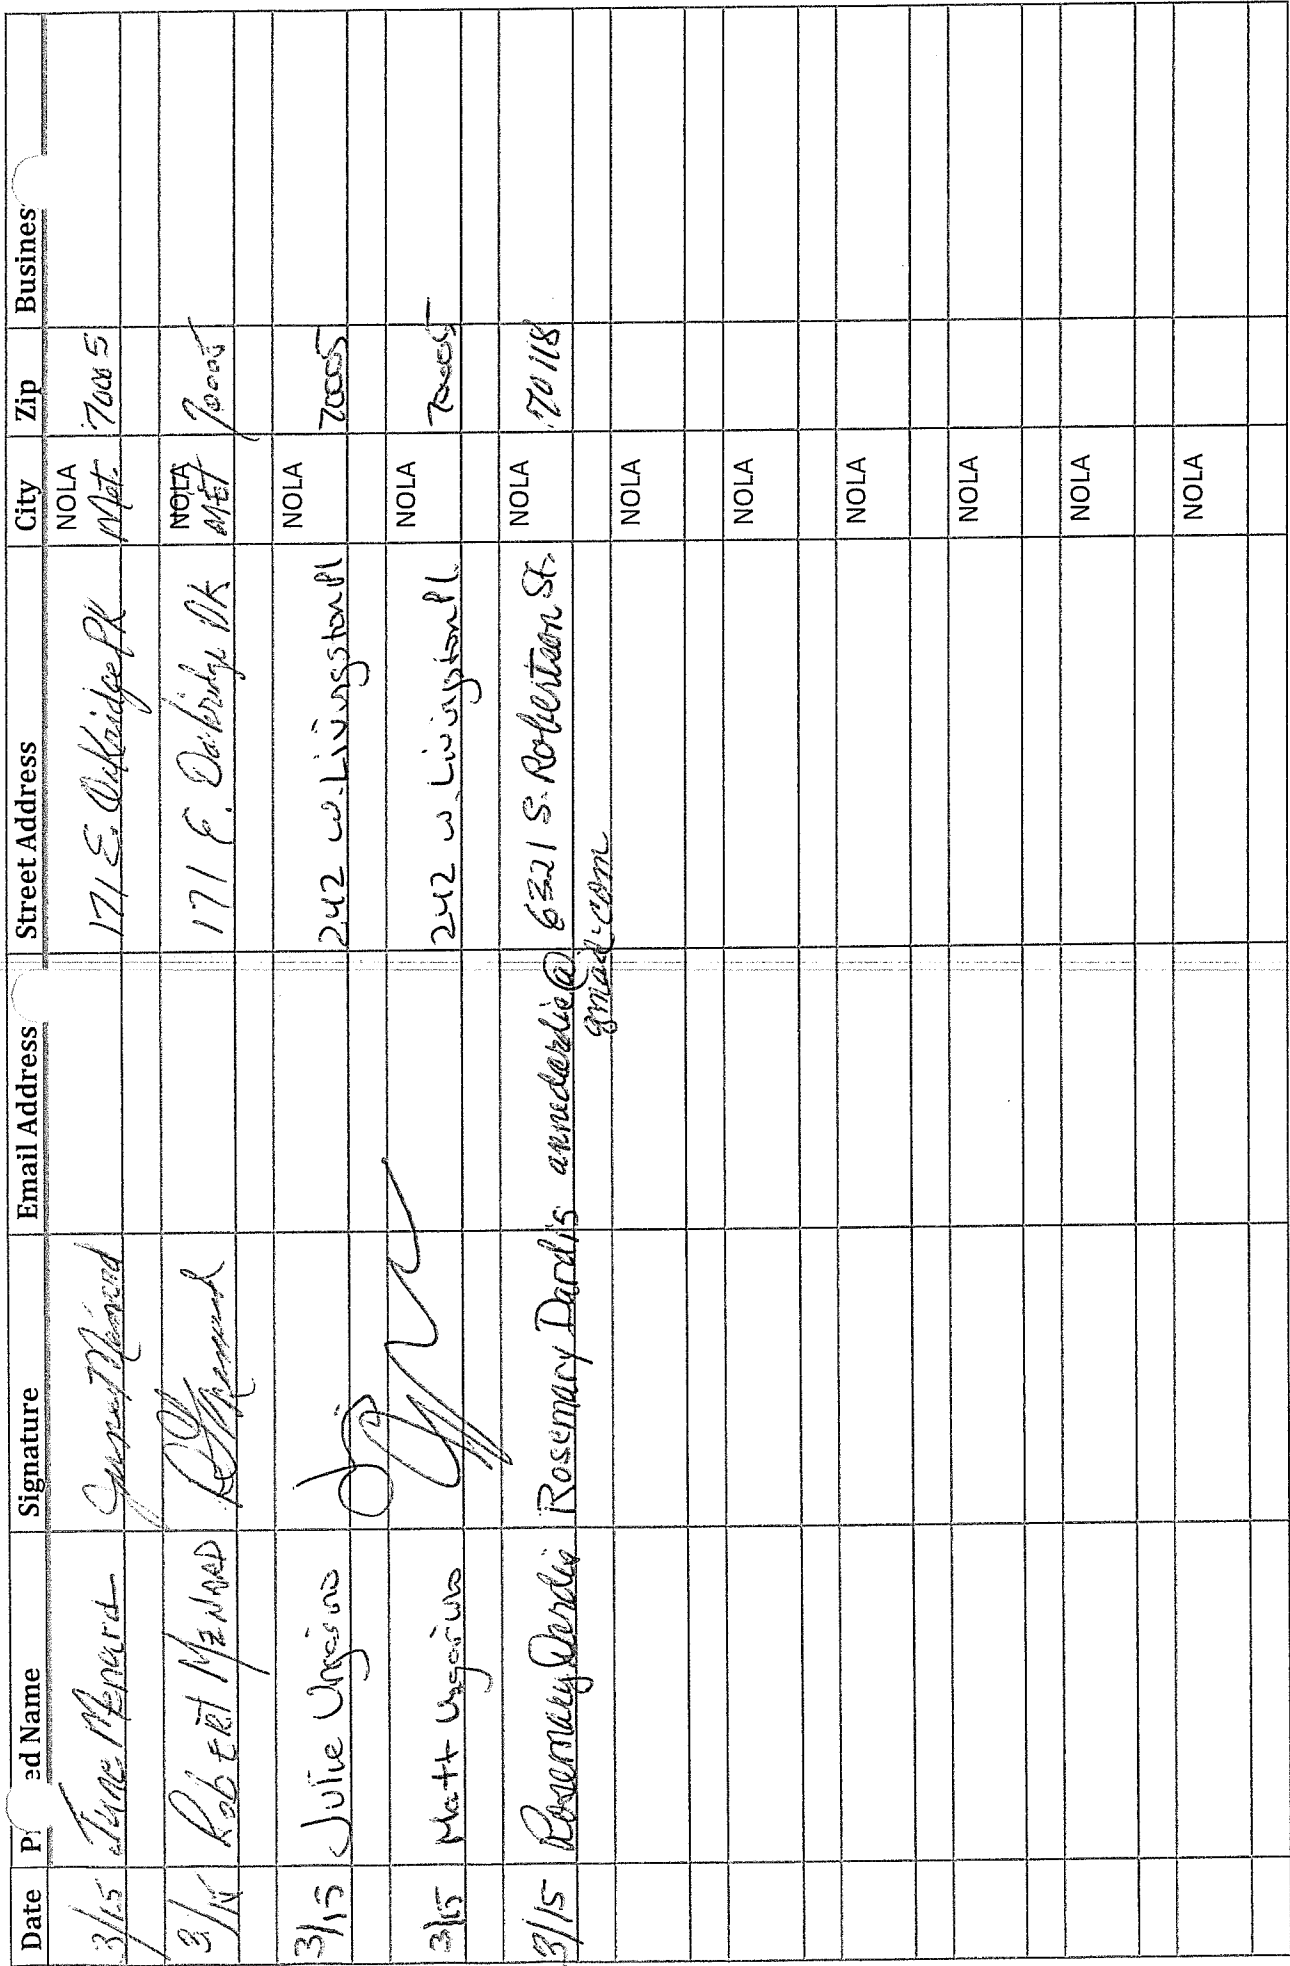 Date P ed Name Signature Email Address Street Address City Zip Busines
3/15 June Menard June Menard 171 E. Oakridge PK NOLA Met. 70005
3/15 RobERT MENARD 171 E. Oakridge PK NOLA MET 70005
3/15 Julie Ungarino 242 W. Livingston Pl NOLA 70005
3/15 Matt Ungarino 242 W. Livingston Pl. NOLA 70005
3/15 Rosemary Dardis Rosemary Dardis annedardis@ 6321 S. Robertson St. NOLA 70118
gmail.com
NOLA
NOLA
NOLA
NOLA
NOLA
NOLA